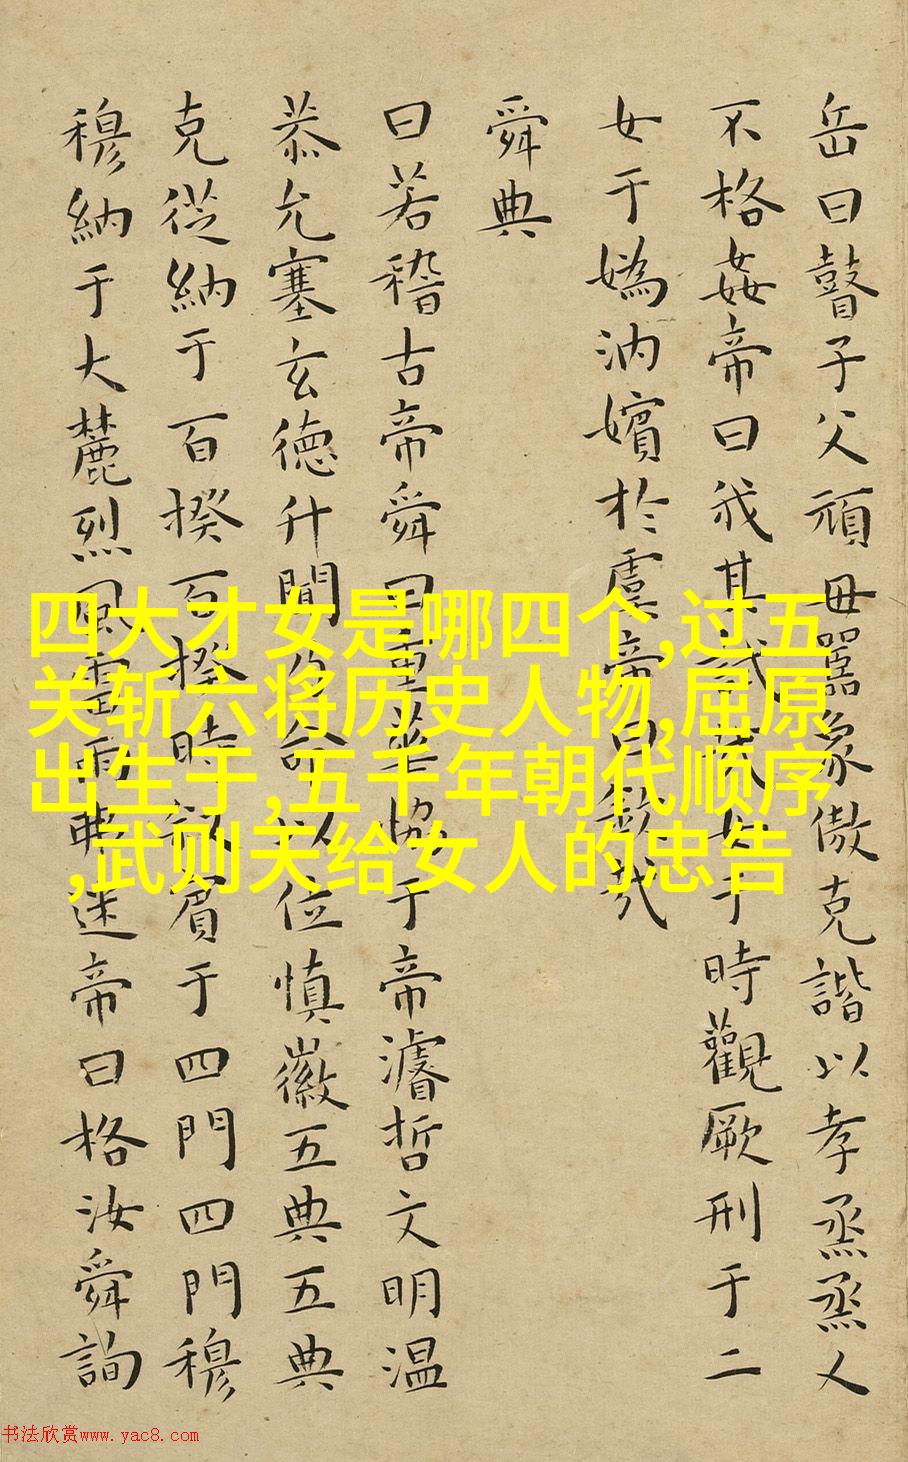 岳曰瞽子父頑毋嚚象傲克諧以孝烝烝乂
不格姦帝曰我其試哉女于時觀厥刑于二
女于媯汭嬪於虞帝曰欽哉
舜典
曰若稽古帝舜曰重華協于帝濬哲文明温
恭允塞玄德升聞乃命以位慎徽五典五典
克從納于百揆百揆時敘賓于四門四門穆
穆納于大麓烈風雷雨弗迷帝曰格汝舜詢
四大才女是哪四个,过五
关斩六将历史人物,屈原
出生于,五千年朝代顺序
,武则天给女人的忠告
书法欣赏www.yac8.com